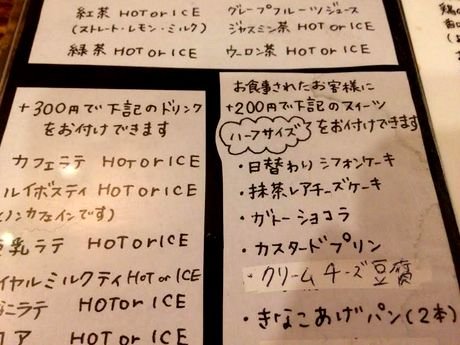 紅茶 HOT or ICE
(ストレート・レモン・ミルク)
緑茶 HOT or ICE
グレープフルーツジュース
ジャスミン茶 HOT or ICE
ウーロン茶 HOT or ICE
+300円で下記のドリンク
をお付けできます
カフェラテ HOT or ICE
ルイボスティ HOT or ICE
(ノンカフェインです)
乳ラテ HOT or ICE
イヤルミルクティ HOT or ICE
ニラテ HOT or ICE
コア HOT or ICE
お食事されたお客様に
+200円で下記のスイーツ
ハーフサイズをお付けできます
・日替わりシフォンケーキ
・抹茶レアチーズケーキ
・ガトーショコラ
・カスタードプリン
・クリームチーズ豆腐
・きなこあげパン(2本)